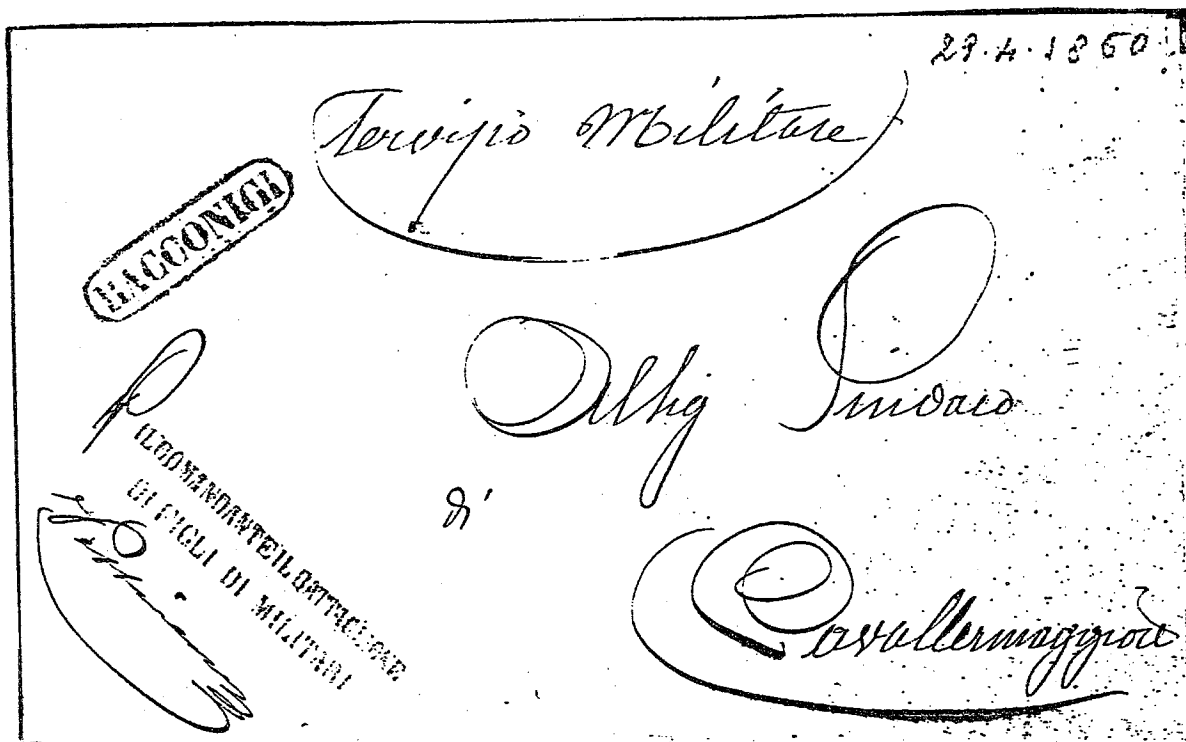 29.4.1860
Servizio Militare
RACCONIGI
Al Sig Sindaco
di
Cavallermaggiore
P
IL COMANDANTE IL BATTAGLIONE
DI FIGLI DI MILITARI